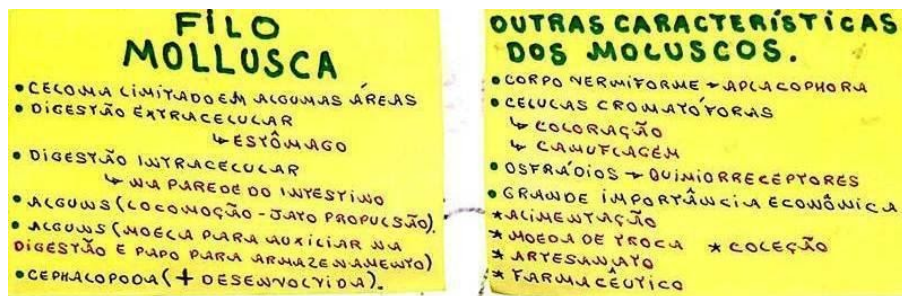 FILO
MOLLUSCA
• CELOMA LIMITADO EM ALGUMAS ÁREAS
• DIGESTÃO EXTRACELULAR
↳ ESTÔMAGO
• DIGESTÃO INTRACELULAR
↳ NA PAREDE DO INTESTINO
• ALGUNS (LOCOMOÇÃO - JATO PROPULSÃO).
• ALGUNS (MOELA PARA AUXILIAR NA
DIGESTÃO E PAPO PARA ARMAZENAMENTO)
• CEPHALOPODA (+ DESENVOLVIDA).
OUTRAS CARACTERÍSTICAS
DOS MOLUSCOS.
• CORPO VERMIFORME → APLACOPHORA
• CELULAS CROMATÓFORAS
↳ COLORAÇÃO
↳ CAMUFLAGEM
• OSFRÁDIOS → QUIMIORRECEPTORES
• GRANDE IMPORTÂNCIA ECONÔMICA
* ALIMENTAÇÃO
* MOEDA DE TROCA * COLEÇÃO
* ARTESANATO
* FARMACÊUTICO